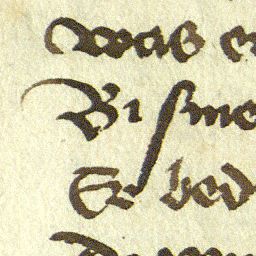 was e
Bi sme
Er bed